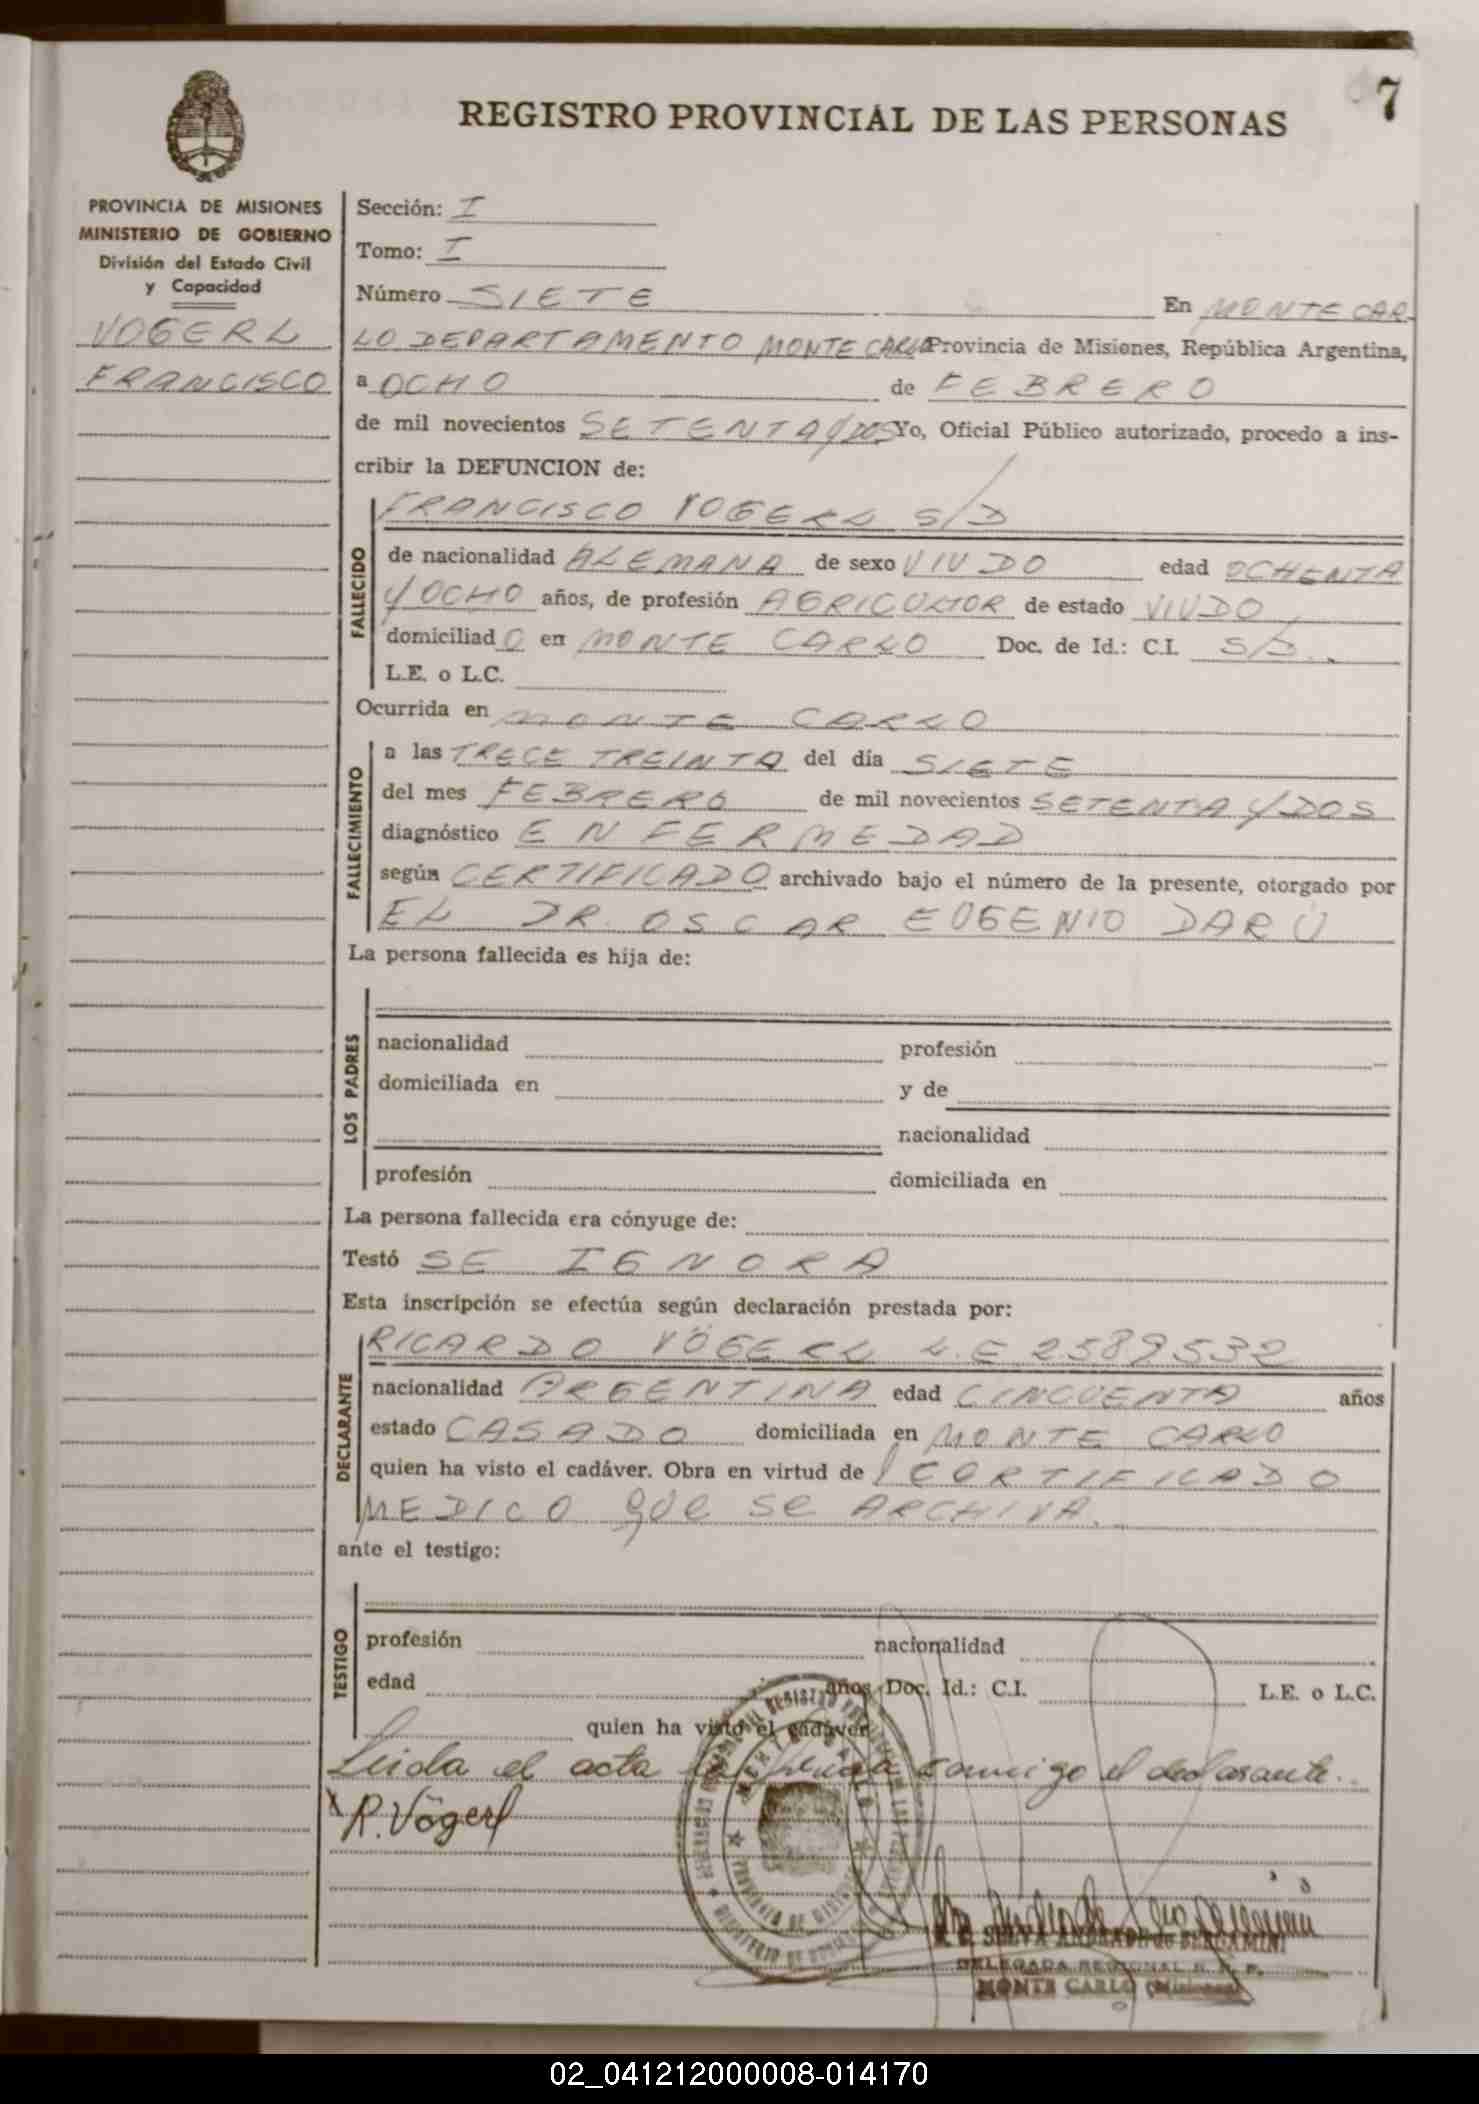 7
REGISTRO PROVINCIAL DE LAS PERSONAS
PROVINCIA DE MISIONES
MINISTERIO DE GOBIERNO
División del Estado Civil
y Capacidad
VOGERL
FRANCISCO
Sección: I
Tomo: I
Número SIETE En MONTE CAR
LO DEPARTAMENTO MONTE CARLO Provincia de Misiones, República Argentina,
a OCHO de FEBRERO
de mil novecientos SETENTA Y DOS Yo, Oficial Público autorizado, procedo a ins-
cribir la DEFUNCION de:
FALLECIDO
FRANCISCO VOGERL S/D
de nacionalidad ALEMANA de sexo VIUDO edad OCHENTA
Y OCHO años, de profesión AGRICULTOR de estado VIUDO
domiciliad O en MONTE CARLO Doc. de Id.: C.I. S/D.
L.E. o L.C.
Ocurrida en MONTE CARLO
FALLECIMIENTO
a las TRECE TREINTA del día SIETE
del mes FEBRERO de mil novecientos SETENTA Y DOS
diagnóstico ENFERMEDAD
según CERTIFICADO archivado bajo el número de la presente, otorgado por
EL DR. OSCAR EUGENIO DARÚ
La persona fallecida es hija de:
LOS PADRES
nacionalidad profesión
domiciliada en y de
nacionalidad
profesión domiciliada en
La persona fallecida era cónyuge de:
Testó SE IGNORA
Esta inscripción se efectúa según declaración prestada por:
DECLARANTE
RICARDO VÖGERL L.E 2589532
nacionalidad ARGENTINA edad CINCUENTA años
estado CASADO domiciliada en MONTE CARLO
quien ha visto el cadáver. Obra en virtud de CERTIFICADO
MEDICO QUE SE ARCHIVA.
ante el testigo:
TESTIGO
profesión nacionalidad
edad años, Doc. Id.: C.I. L.E. o L.C.
quien ha visto el cadáver
Leida el acta la firma conmigo el declarante.
X R. Vögerl
MONTE CARLO
PROVINCIA DE MISIONES
SILVA ANDRADE de BERGAMINI
DELEGADA REGIONAL R. P. P.
MONTE CARLO (Misiones)
02_041212000008-014170